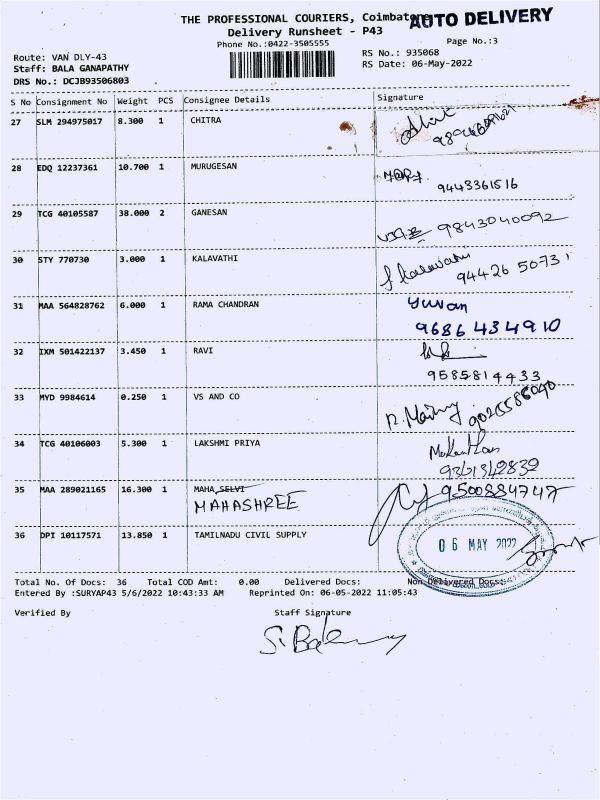 THE PROFESSIONAL COURIERS, Coimbatore
AUTO DELIVERY
Delivery Runsheet - P43
Phone No.:0422-3505555
Page No.:3
Route: VAN DLY-43
RS No.: 935068
Staff: BALA GANAPATHY
RS Date: 06-May-2022
DRS No.: DCJB93506803
S No Consignment No Weight PCS Consignee Details Signature
27 SLM 294975017 8.300 1 CHITRA
28 EDQ 12237361 10.700 1 MURUGESAN
9443361516
29 TCG 40105587 38.000 2 GANESAN
9843040092
30 STY 770730 3.000 1 KALAVATHI
Kalavathi
94426 50731
31 MAA 564828762 6.000 1 RAMA CHANDRAN
Yuvan
9686434910
32 IXM 501422137 3.450 1 RAVI
9585814433
33 MYD 9984614 0.250 1 VS AND CO
34 TCG 40106003 5.300 1 LAKSHMI PRIYA
35 MAA 289021165 16.300 1 MAHA SELVI
9500884747
MAHASHREE
36 DPI 10117571 13.850 1 TAMILNADU CIVIL SUPPLY
06 MAY 2022
Total No. Of Docs: 36 Total COD Amt: 0.00 Delivered Docs: Non Delivered Docs:
Entered By :SURYAP43 5/6/2022 10:43:33 AM Reprinted On: 06-05-2022 11:05:43
Verified By Staff Signature